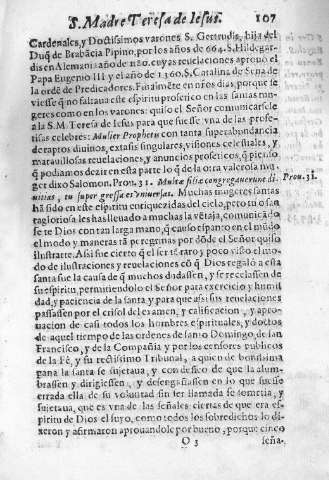 S. Madre Teresa de Iesus. 107
Cardenales, y Doctissimos varones S. Gertrudis, hija del
Duq̃ de Brabãcia Pipino, por los años de 664. S. Hildegar-
dis en Alemani año de cuyas reuelaciones aprouò el
Papa Eugenio III y el año de 1360. S. Catalina de Sena de
la ordẽ de Predicadores. Finalmẽte en nr̃os dias, porque se
viesse q̃ no faltaua este espiritu profetico en las santas mu-
geres como en los varones: quiso el Señor comunicarsele
a la S. M. Teresa de Iesus para que fuesse vna de las profe-
tisas celebres: Mulier Prophetis con tanta superabundancia
de raptos diuinos, extasis singulares, visiones celestiales, y
marauillosas reuelaciones, y anuncios profeticos, q̃ piẽso
q̃ podiamos dezir en esta parte lo q̃ de la otra valerosa mu-
ger dixo Salomon. Prou. 31. Multæ filiæ congregauerunt di- Prou. 31.
uitias, tu supergressa es vniuersas. Muchas mugeres santas
hã sido en este espiritu enriquezidas del cielo, pero tu o san
ta gloriosa les has lleuado a muchas la vẽtaja, comunicãdo
se te Dios con tan larga mano, q̃ causo espanto en el mũdo
el modo y maneras tã peregrinas por dõde el Señor quiso
ilustrarte. Assi fue cierto q̃ el ser tã raro y poco visto el mo-
do de ilustraciones y reuelaciones cõ q̃ Dios regalò a esta
santa fue la causa de q̃ muchos dudassen, y se recelassen de
su espiritu, permitiendolo el Señor para exercicio y humil
dad, y paciencia de la santa y para que assi sus reuelaciones
passassen por el crisol del examen, y calificacion, y apro-
uacion de casi todos los hombres espirituales, y doctos
de aquel tiempo de las ordenes de santo Domingo, de san
Francisco, y de la Compañia y por los censores publicos
de la Fè, y su rectissimo Tribunal, a quien de bonissima
gana la santa se sujetaua, y con desseo de que la alum-
brassen y dirigiessen, y desengañassen en lo que fuesse
errada ella de su voluntad sin ser llamada se sometia, y
sujetaua, que es vna de las señales ciertas de que era es-
piritu de Dios el suyo, como todos los sobredichos lo di-
xeron y afirmaron aprouandole por bueno, porque cinco
O 3 seña-